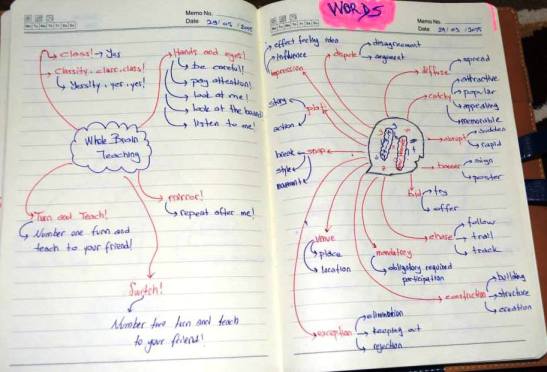 Memo No.
Date 29/05/2015
class! → Yes
Classity, class, class!
Yessity, yes, yes!
Hands and eyes!
be careful!
pay attention!
look at me!
look at the board!
listen to me!
Whole Brain
Teaching
mirror!
repeat after me!
Turn and Teach!
Number one turn and
teach to your friend!
Switch!
Number two turn and teach
to your friend!
WORDS
Memo No.
Date 29/05/2015
effect feeling idea
influence
impression
dispute
disagreement
argument
diffuse
spread
catchy
attractive
popular
appealing
memorable
plot
story
action
abrupt
sudden
rapid
snap
break
style
banner
sign
poster
bid
try
offer
chase
follow
trail
track
venue
place
location
mandatory
obligatory required
participation
construction
building
structure
creation
exception
elimination
keeping out
rejection